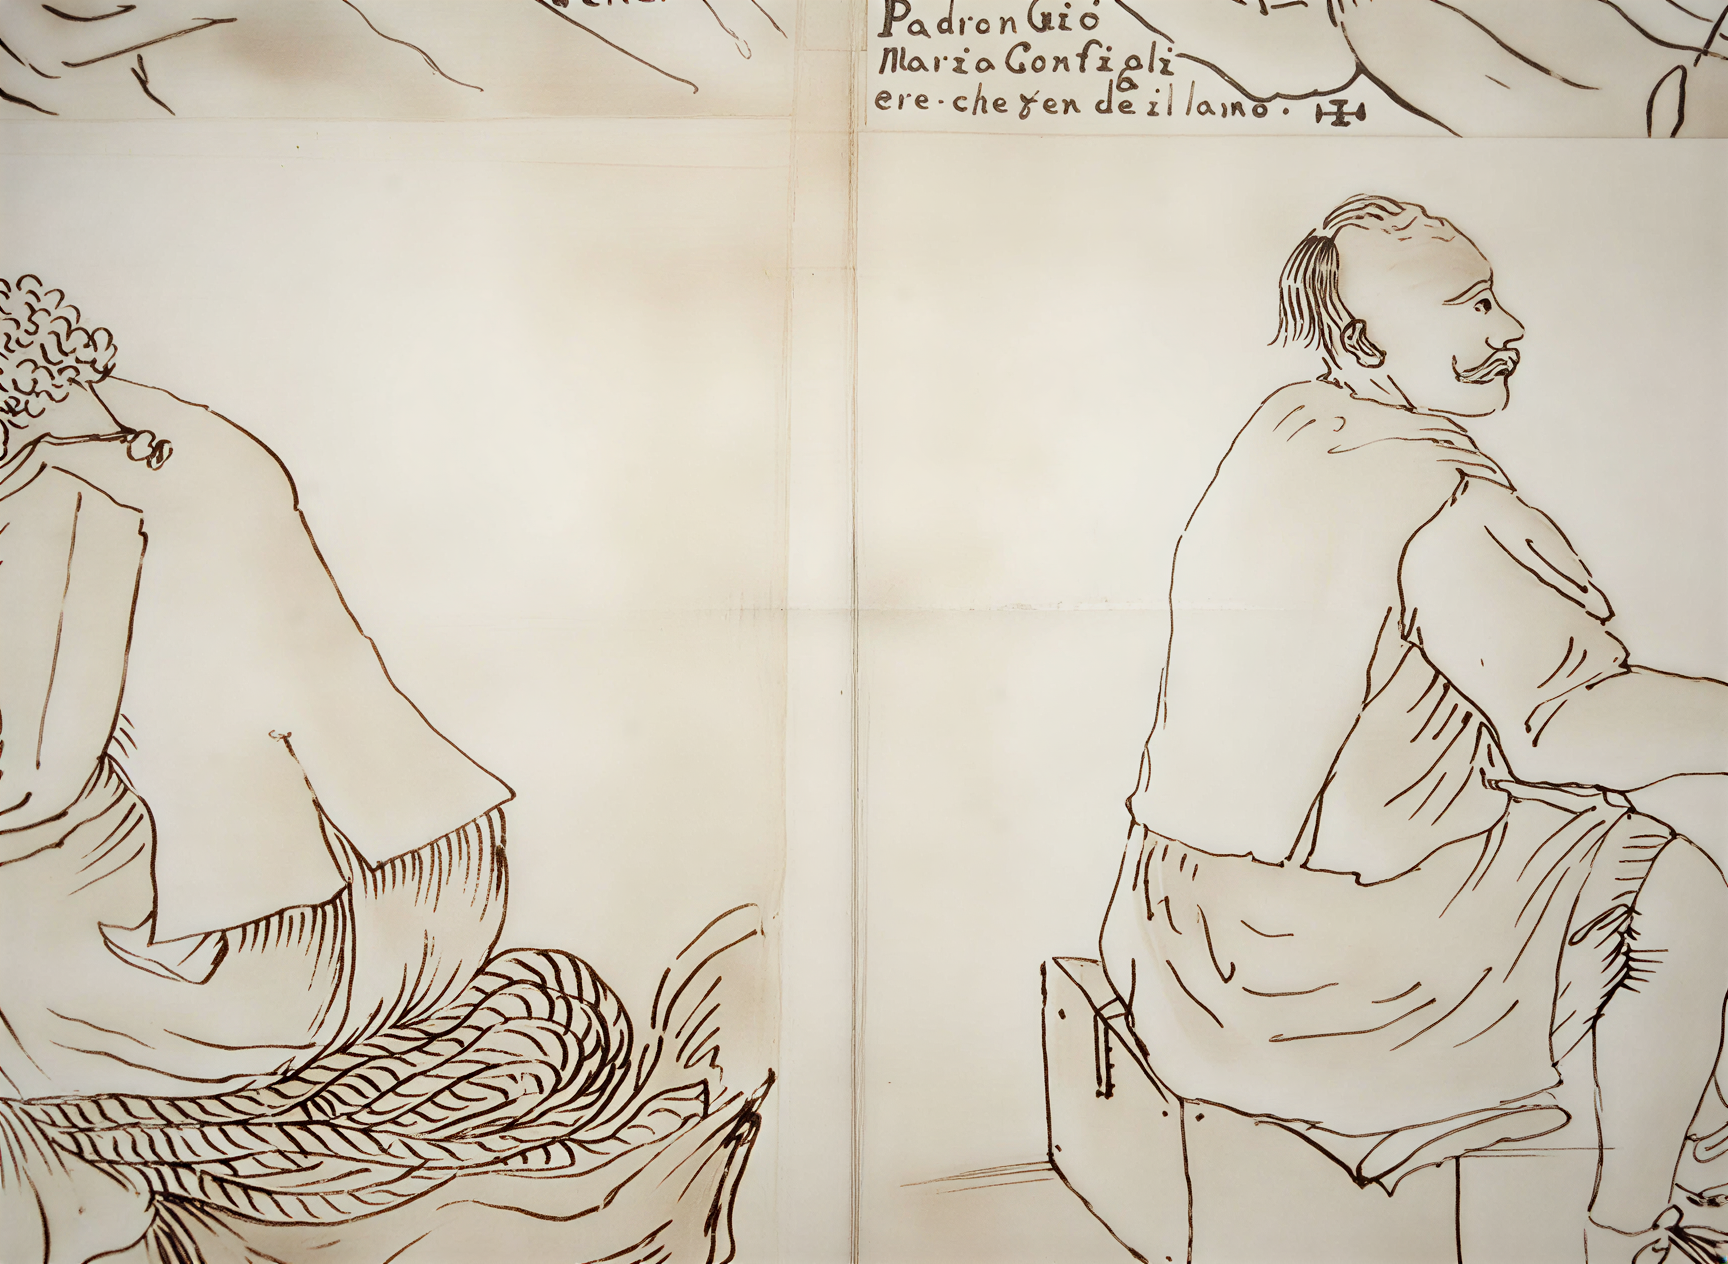 Padron Giò
Maria Configli
ere. che ven de il lamo.